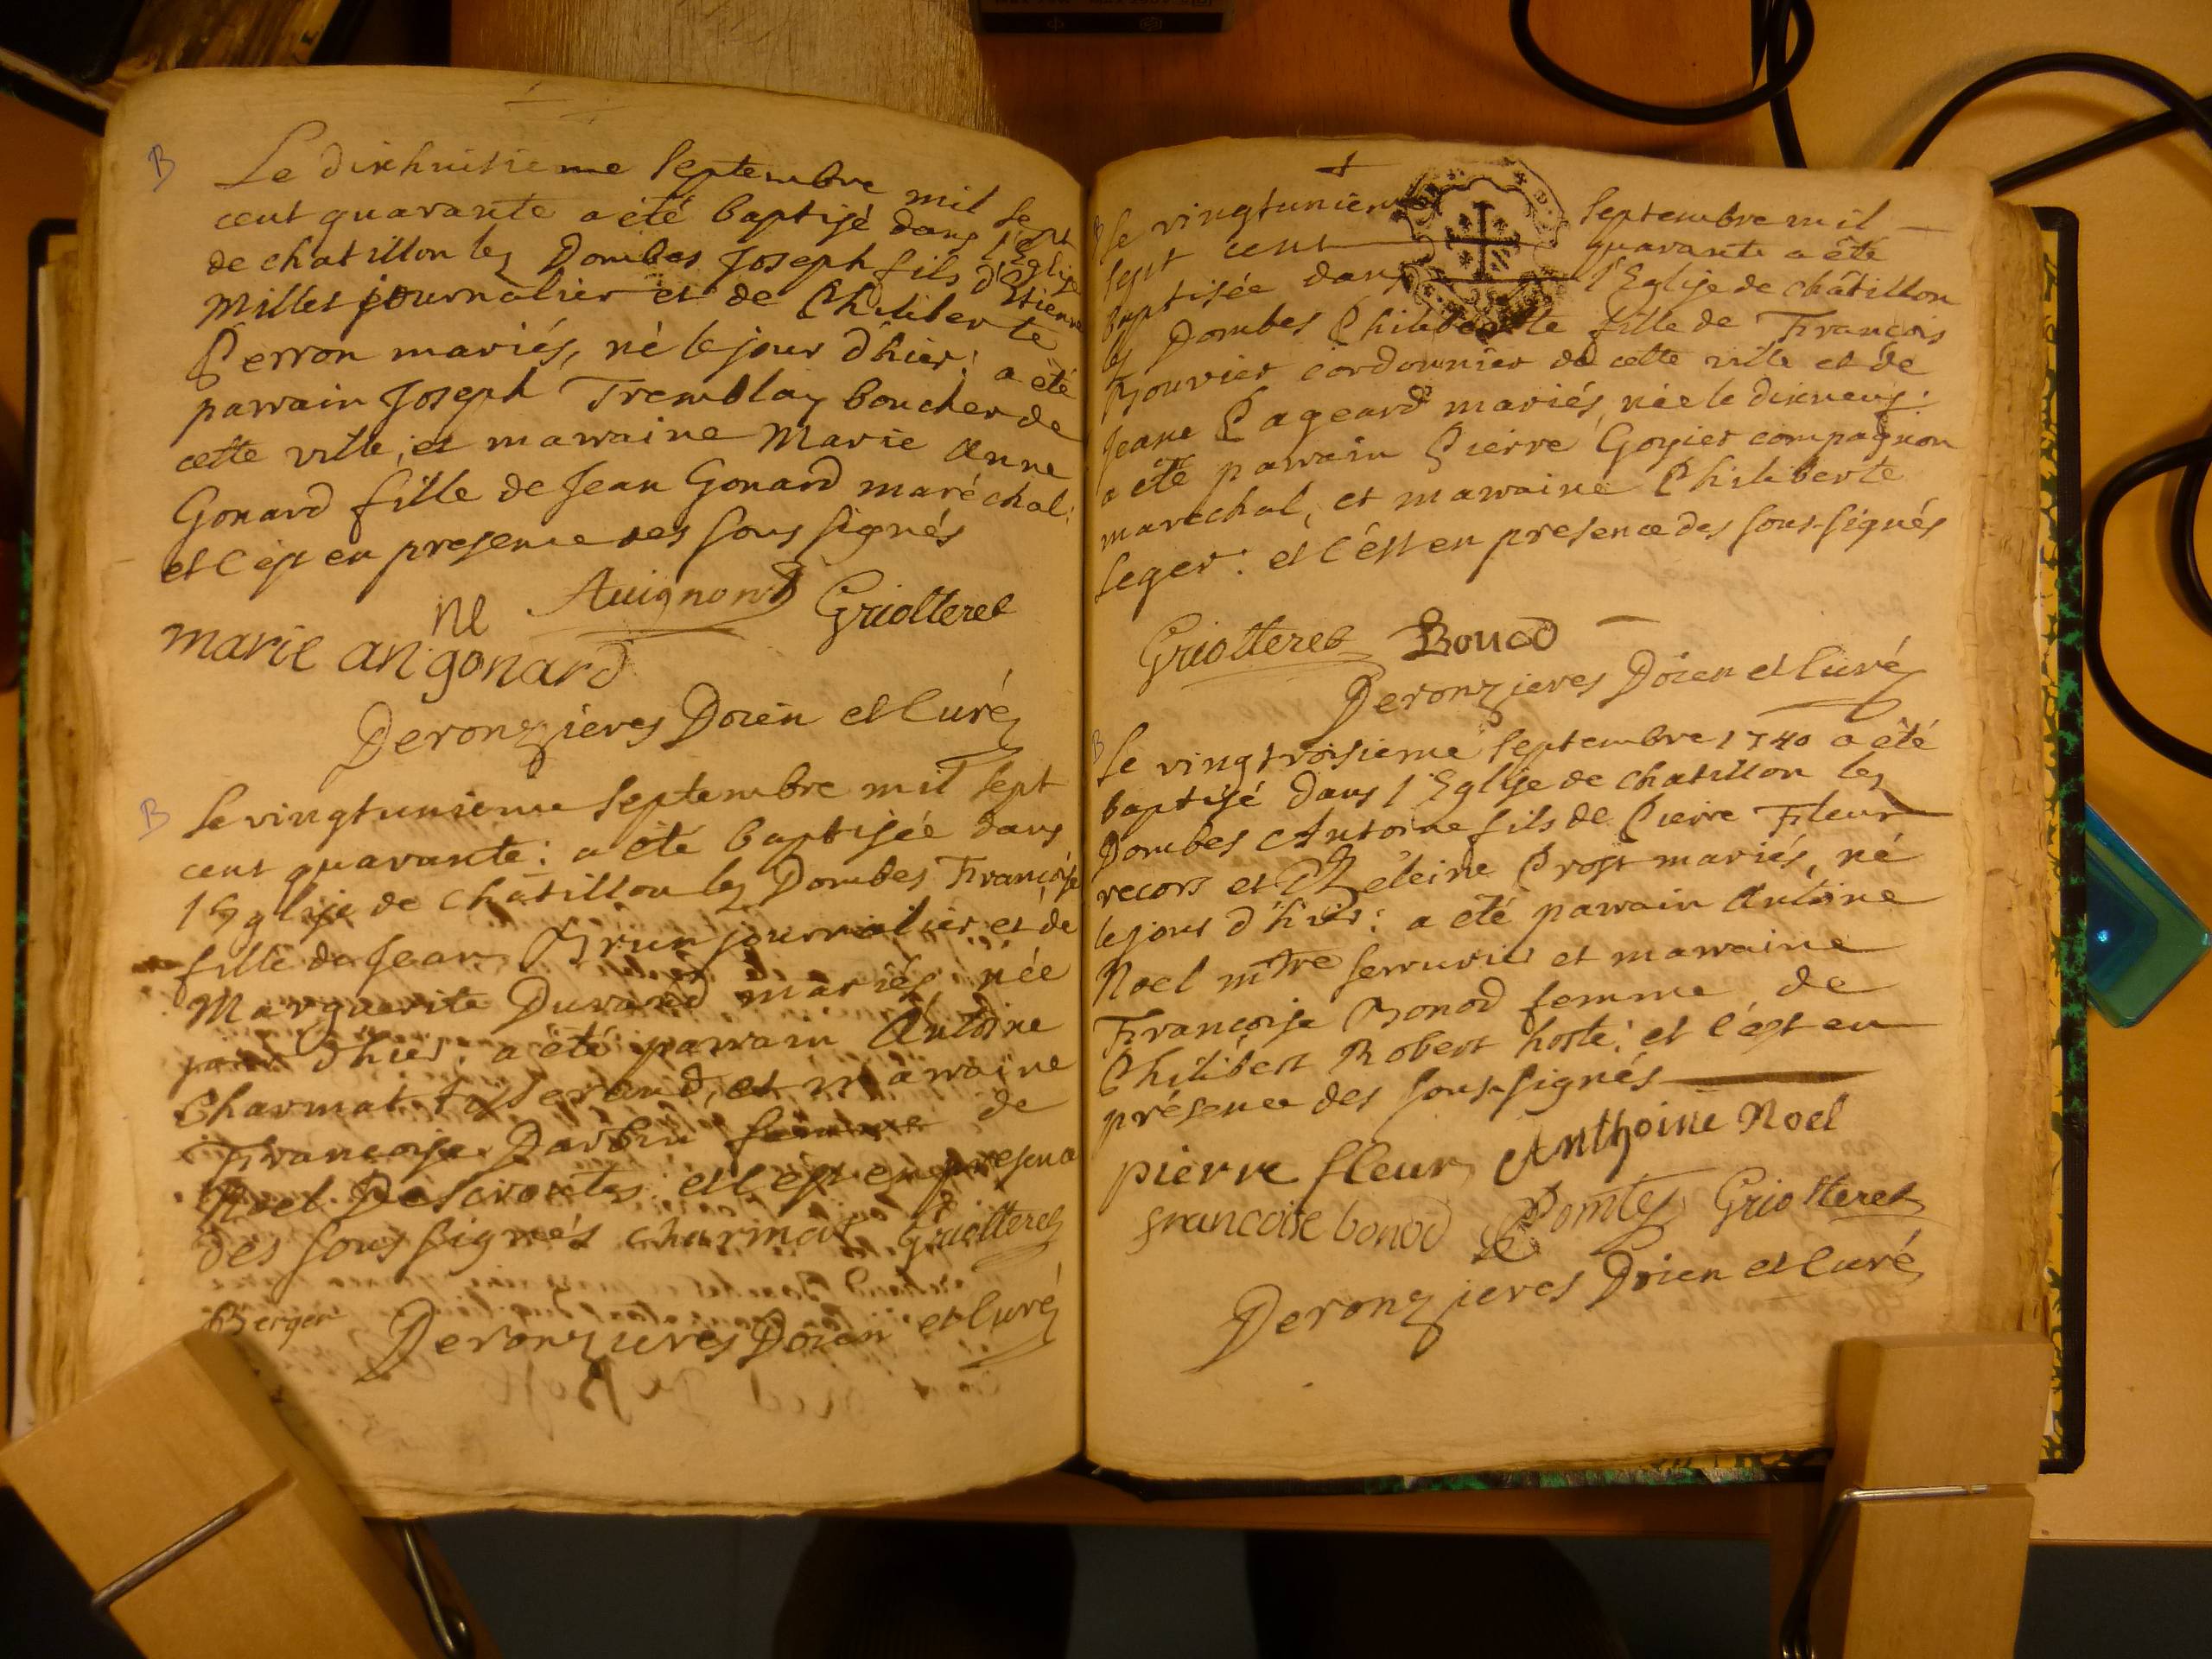 B
Le dixhuitieme Septembre mil sept
cent quarante a été baptisé dans l'Eglise
de chatillon les Dombes Joseph fils d'Etienne
Millet journalier et de Philiberte
Perron mariés, né le jour d'hier: a été
parrain Joseph Tremblay boucher de
cette ville, et marraine Marie Anne
Gonard fille de Jean Gonard maréchal:
et c'est en presence des sous signés
Avignon Griotteret
marie an ne gonard
Deronzieres Doien et Curé
B
Le vingtunieme Septembre mil sept
cent quarante: a été baptisée dans
l'Eglise de châtillon les Dombes Françoise
fille de Jean Brun journalier et de
Marguerite Durand mariés, née
d'hier: a été parrain Antoine
Charmat tisserand, et marraine
Françoise Darbon femme de
Noel Descrontes: et c'est en presence
des sous signés charmat Griotteret
Berger
Deronzieres Doien et Curé
B
Le vingtunieme Septembre mil
sept cent quarante a été
baptisée dans l'Eglise de châtillon
les Dombes Philiberte fille de François
Bouvier cordonnier de cette ville et de
Jeane Pageard mariés, née le dixneuf:
a été parrain Pierre Goyier compagnon
marechal, et marraine Philiberte
Leger: et c'est en presence des sous-signés
Griotteret Bouad
Deronzieres Doien et Curé
B
Le vingtroisieme Septembre 1740 a été
baptisé dans l'Eglise de chatillon les
Dombes Antoine fils de Pierre Fleur
recors et d'Heleine Prost mariés, né
le jour d'hier: a été parrain Antoine
Noel mtre serrurier et marraine
Françoise Bonod femme de
Philibert Robert hoste: et c'est en
présence des sous-signés
pierre fleur Anthoine Noel
francoise bonod Pomtes Griotteret
Deronzieres Doien et Curé